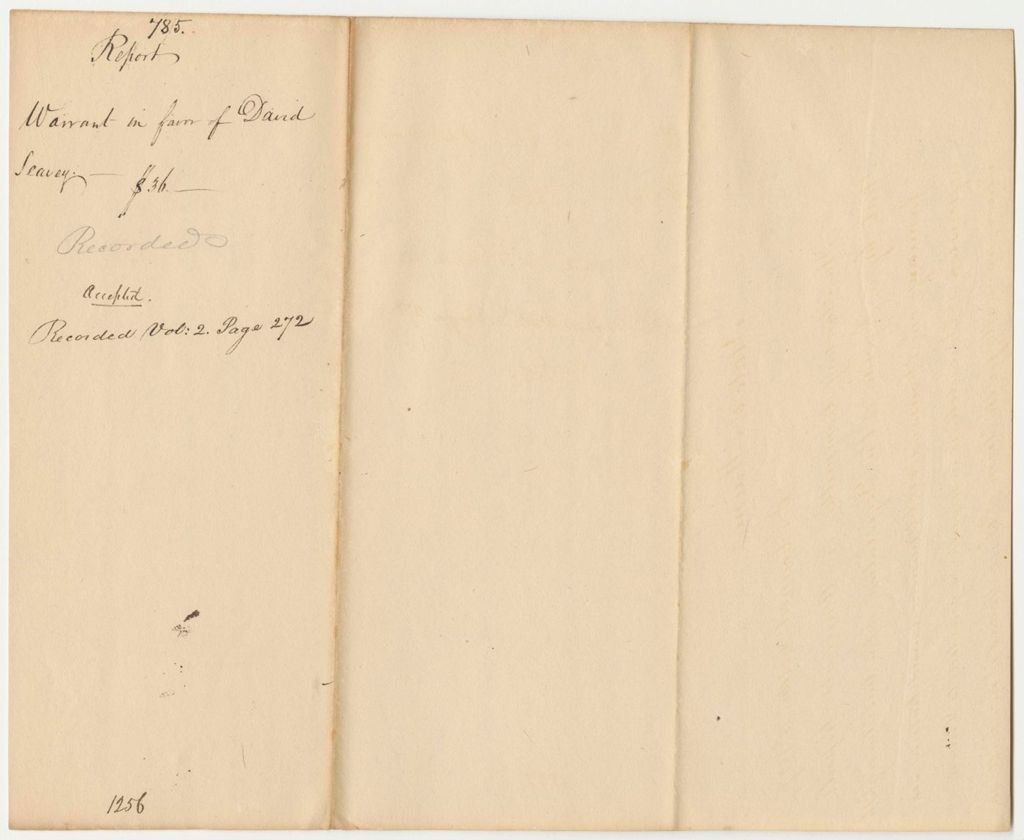 785.
Report
Warrant in favor of David
Seavey. — $36 —
Recorded
Accepted.
Recorded Vol: 2. Page 272
1256